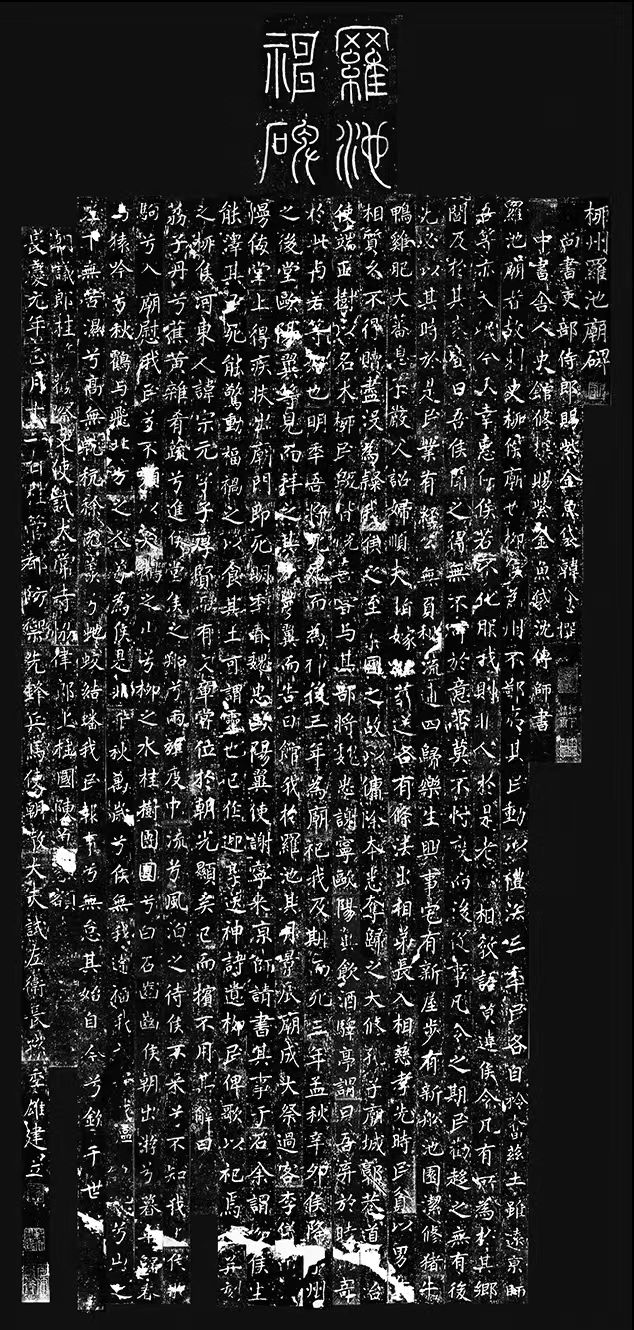 羅池
神碑
柳州羅池廟碑
尚書吏部侍郎賜紫金魚袋韓愈撰
中書舍人史館修撰賜紫金魚袋沈傳師書
羅池廟者故刺史柳侯廟也柳侯為州不鄙夷其民動以禮法三年民各自矜奮茲土雖遠京師
吾等亦天氓今天幸惠仁侯若不化服我則非人於是老相教語莫違侯令凡有所為於其鄉
閭及於其家皆曰吾侯聞之得無不可於意否莫不忖度而後從事凡令之期民勸趨之無有後
先必以其時於是民業有經公無負租流逋四歸樂生興事宅有新屋步有新船池園潔修豬牛
鴨雞肥大蕃息子嚴父詔婦順夫指嫁娶葬送各有條法出相弟長入相慈孝先時民貧以男
相質久不得贖盡沒為隸我侯之至案國之故以傭除本悉奪歸之大修孔子廟城郭巷道治
使端正樹以名木柳民既皆悅喜嘗與其部將魏忠謝寧歐陽翼飲酒驛亭謂曰吾棄於時寄
於此与若等好也明年吾將死死而為神後三年為廟祀我及期而死三年孟秋辛卯侯降州
之後堂歐陽翼等見而拜之其夕夢翼而告曰館我於羅池其月景辰廟成大祭過客李儀
慢侮堂上得疾扶出廟門即死明年春魏忠歐陽翼使謝寧來京師請書其事于石余謂柳侯生
能澤其民死能驚動福禍之以食其土可謂靈也已作迎享送神詩遺柳民俾歌以祀焉并刻
之柳侯河東人諱宗元字子厚賢而有文章常位於朝光顯矣已而擯不用其辭曰
荔子丹兮蕉黃雜肴蔬兮進侯堂侯之船兮兩旗度中流兮風泊之待侯不來兮不知我侯
駒兮入廟慰我民兮不嚬以笑鵝之山兮柳之水桂樹團團兮白石齒齒侯朝出游兮暮來歸春
与猿吟兮秋鶴与飛北方之人兮為侯是非千秋萬歲兮侯無我違福我兮山之
下無苦濕兮高無乾秔稌充羨兮蛇蛟結蟠我民報事兮無怠其始自今兮欽于世
朝議郎桂管觀察使試太常寺協律郎上柱國陳曾篆額
長慶元年正月十一日桂管都防禦先鋒兵馬使朝散大夫試左衛長史孟雄建立